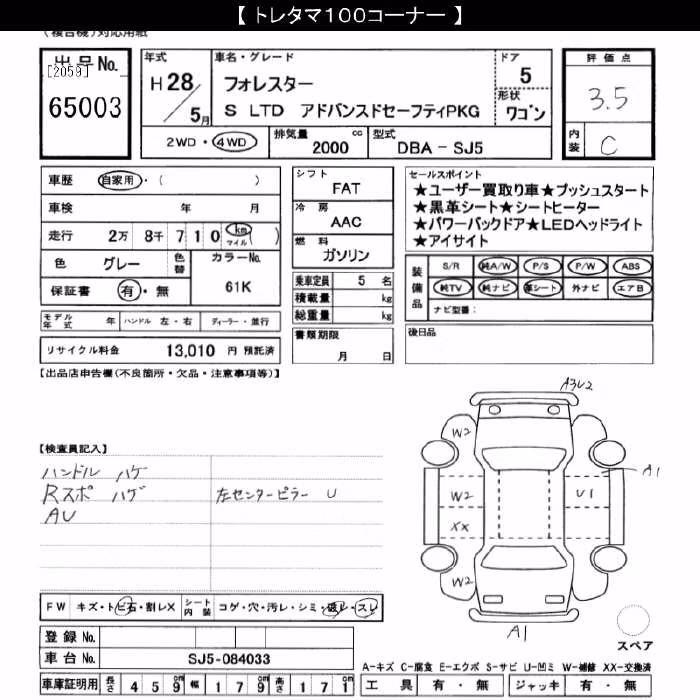 【 トレタマ100コーナー 】
(複合制)対応用紙
出品No.
[2059]
65003
年式
H28/5月
車名・グレード
フォレスター
S LTD アドバンスドセーフティPKG
ドア
5
形状
ワゴン
評価点
3.5
内装
C
2WD・4WD
排気量
2000 cc
型式
DBA - SJ5
車歴 自家用・( )
車検 年 月
走行 2万 8千 7 1 0 km マイル ( )
色 グレー 色替
カラーNo.
61K
保証書 有・無
モデル年式 年 ハンドル 左・右 ディーラー・並行
リサイクル料金 13,010 円 預託済
シフト
FAT
冷房
AAC
燃料
ガソリン
乗車定員 5 名
積載量 kg
総重量 kg
書類期限
月 日
セールスポイント
★ユーザー買取り車★プッシュスタート
★黒革シート★シートヒーター
★パワーバックドア★LEDヘッドライト
★アイサイト
装備品
S/R 純A/W P/S P/W ABS
純TV 純ナビ 革シート 外ナビ エアB
ナビ型番:
後日品
【出品店申告欄(不良箇所・欠品・注意事項等)】
【検査員記入】
ハンドル ハゲ
Rスポ ハゲ
AU
左センターピラー U
A3U2
W2
A1
W2
U1
XX
W2
A1
スペア
FW キズ・トビ石・割レX
シート内装 コゲ・穴・汚レ・シミ・破レ・スレ
登録No.
車台No. SJ5-084033
車庫証明用 長さ 459cm 幅 179cm 高さ 171cm
A-キズ C-腐食 E-エクボ S-サビ U-凹ミ W-補修 XX-交換済
工具 有・無 ジャッキ 有・無